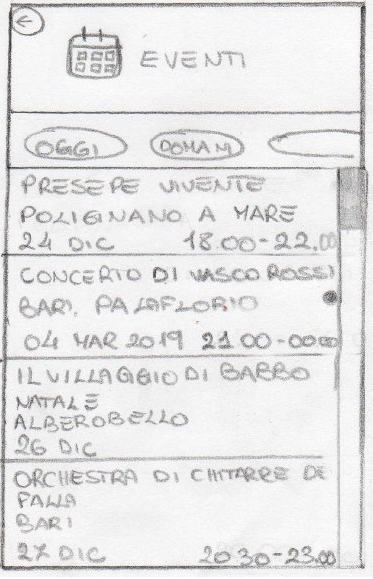 EVENTI
OGGI DOMANI
PRESEPE VIVENTE
POLIGNANO A MARE
24 DIC 18.00-22.00
CONCERTO DI VASCO ROSSI
BARI. PALAFLORIO
04 MAR 2019 21 00-0000
IL VILLAGGIO DI BABBO
NATALE
ALBEROBELLO
26 DIC
ORCHESTRA DI CHITARRE DE
FALLA
BARI
27 DIC 20 30-23.00